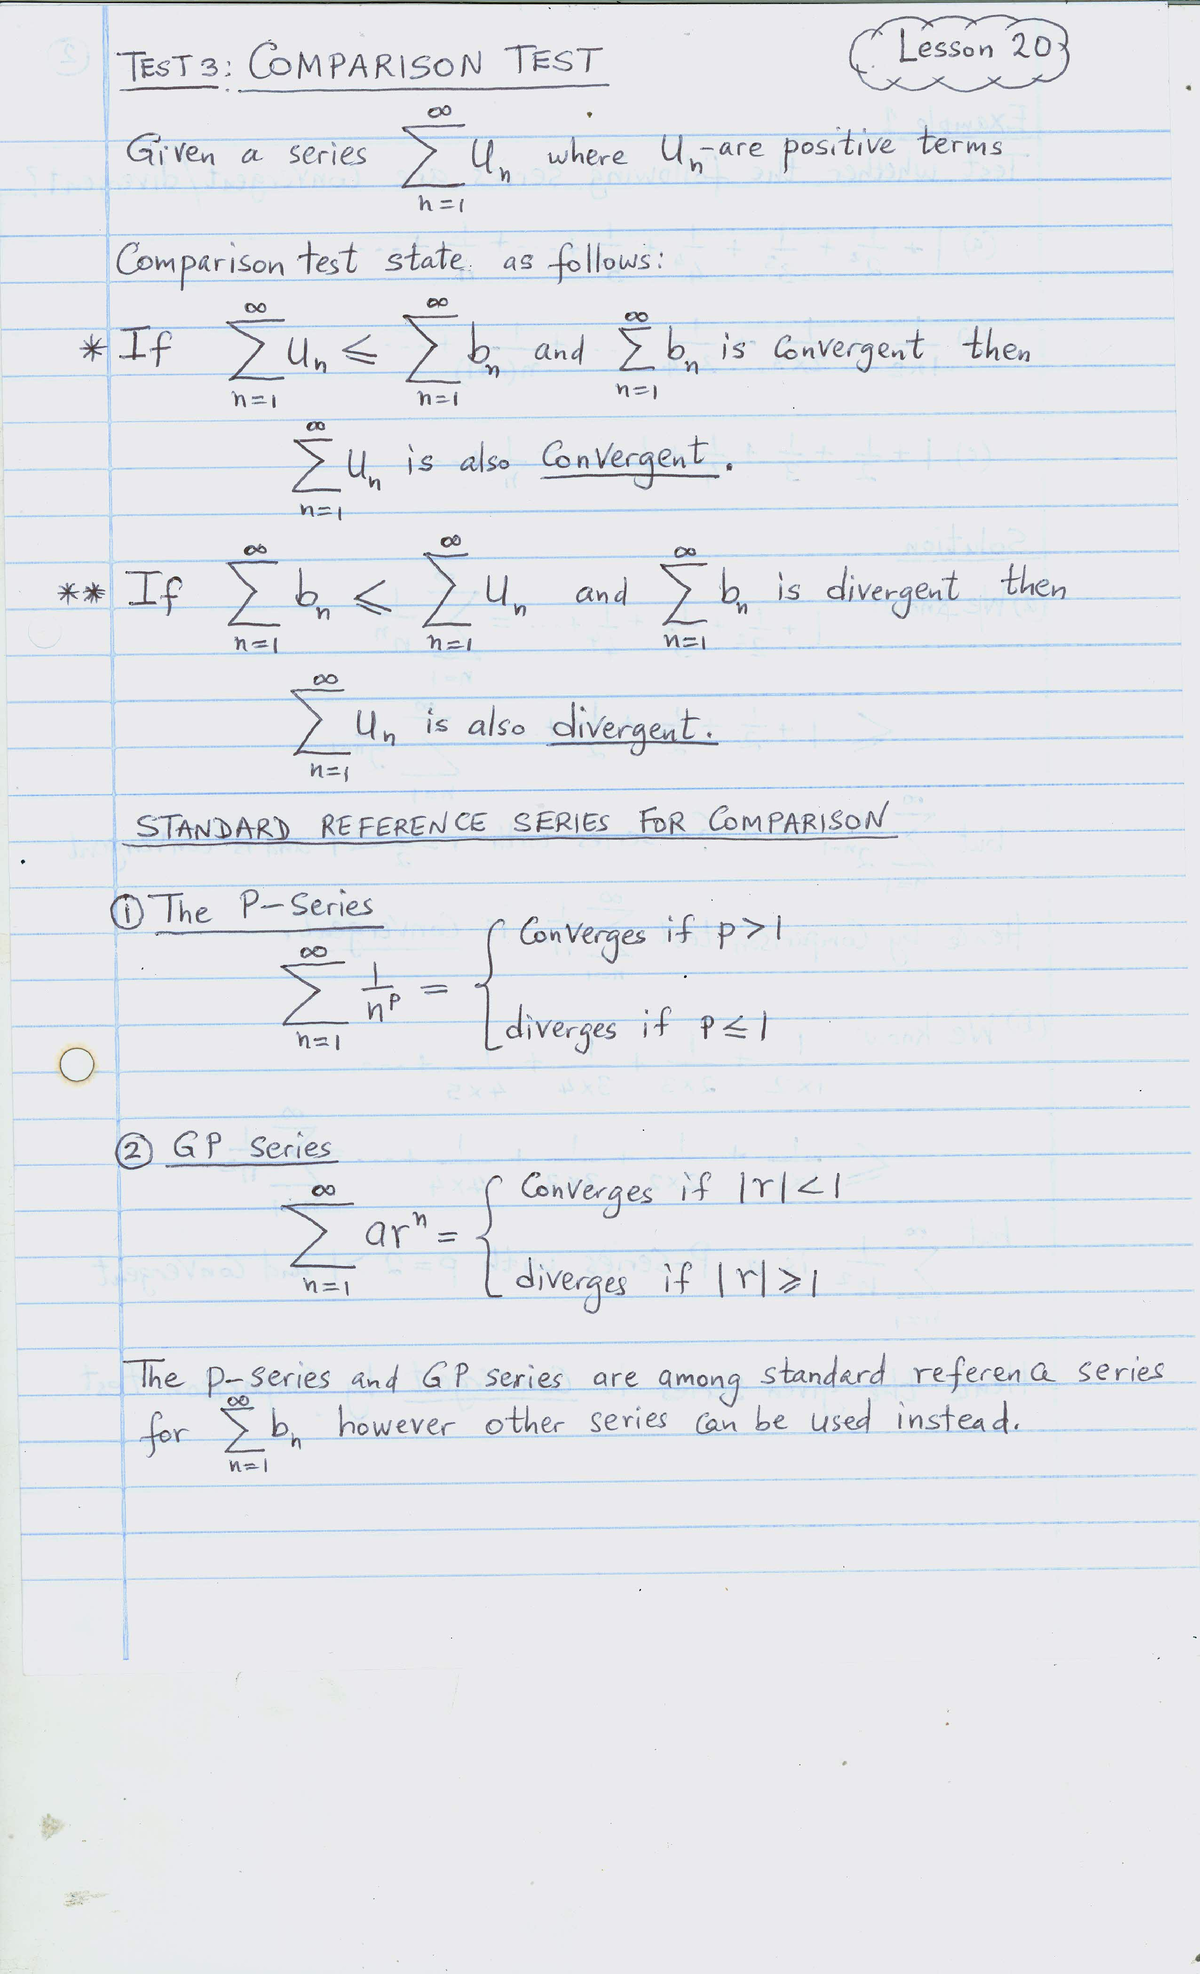 Lesson 20
TEST 3: COMPARISON TEST
Given a series ∑_{n=1}^{∞} Uₙ where Uₙ-are positive terms
Comparison test state as follows:
* If ∑_{n=1}^{∞} Uₙ ⩽ ∑_{n=1}^{∞} bₙ and ∑_{n=1}^{∞} bₙ is Convergent then
∑_{n=1}^{∞} Uₙ is also Convergent.
** If ∑_{n=1}^{∞} bₙ ⩽ ∑_{n=1}^{∞} Uₙ and ∑_{n=1}^{∞} bₙ is divergent then
∑_{n=1}^{∞} Uₙ is also divergent.
STANDARD REFERENCE SERIES FOR COMPARISON
① The P-Series
∑_{n=1}^{∞} 1/n^p = { Converges if p>1
diverges if p⩽1
② GP Series
∑_{n=1}^{∞} arⁿ = { Converges if |r|<1
diverges if |r|⩾1
The p-series and GP series are among standard reference series
for ∑_{n=1}^{∞} bₙ however other series can be used instead.